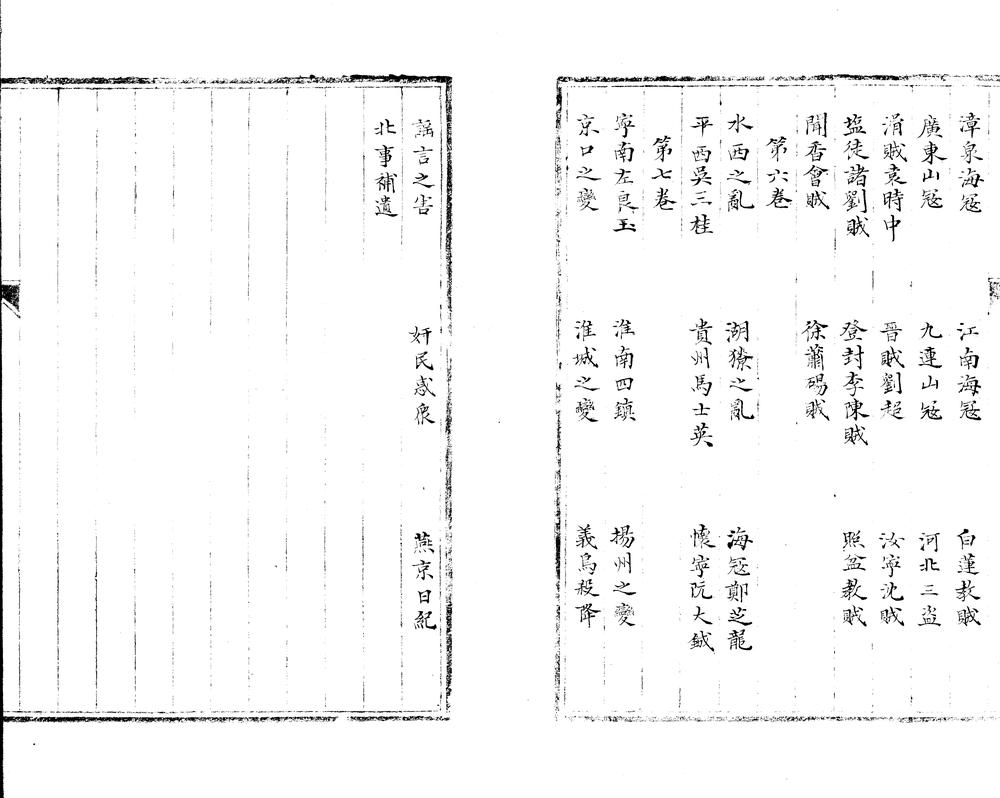 漳泉海冦 江南海冦 白蓮教賊
廣東山冦 九連山冦 河北三盗
渭賊袁時中 晋賊劉超 汝寧沈賊
塩徒諸劉賊 登封李陳賊 照盆教賊
聞香會賊 徐蕭碭賊
第六卷
水西之亂 湖獠之亂 海冦鄭芝龍
平西吳三桂 貴州馬士英 懷寧阮大鋮
第七卷
寧南左良玉 淮南四鎮 揚州之變
京口之變 淮城之變 義烏殺降
謡言之害 奸民惑眾 燕京日紀
北事補遺